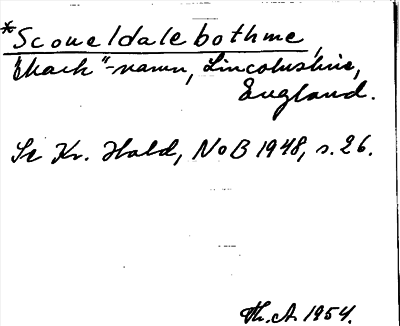 *Scoueldalebothme,
"Mark"-namn, Lincolnshire,
England.
Se Kr. Hald, NoB 1948, s. 26.
Th. A. 1954.